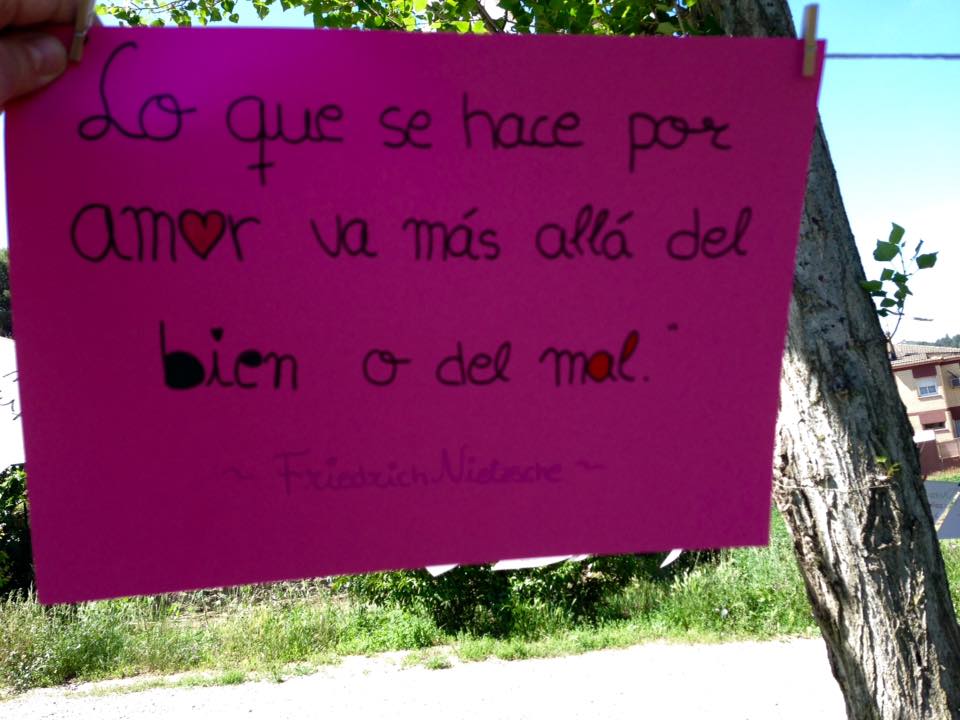 Lo que se hace por
amor va más allá del
bien o del mal."
~ Friedrich Nietzsche ~